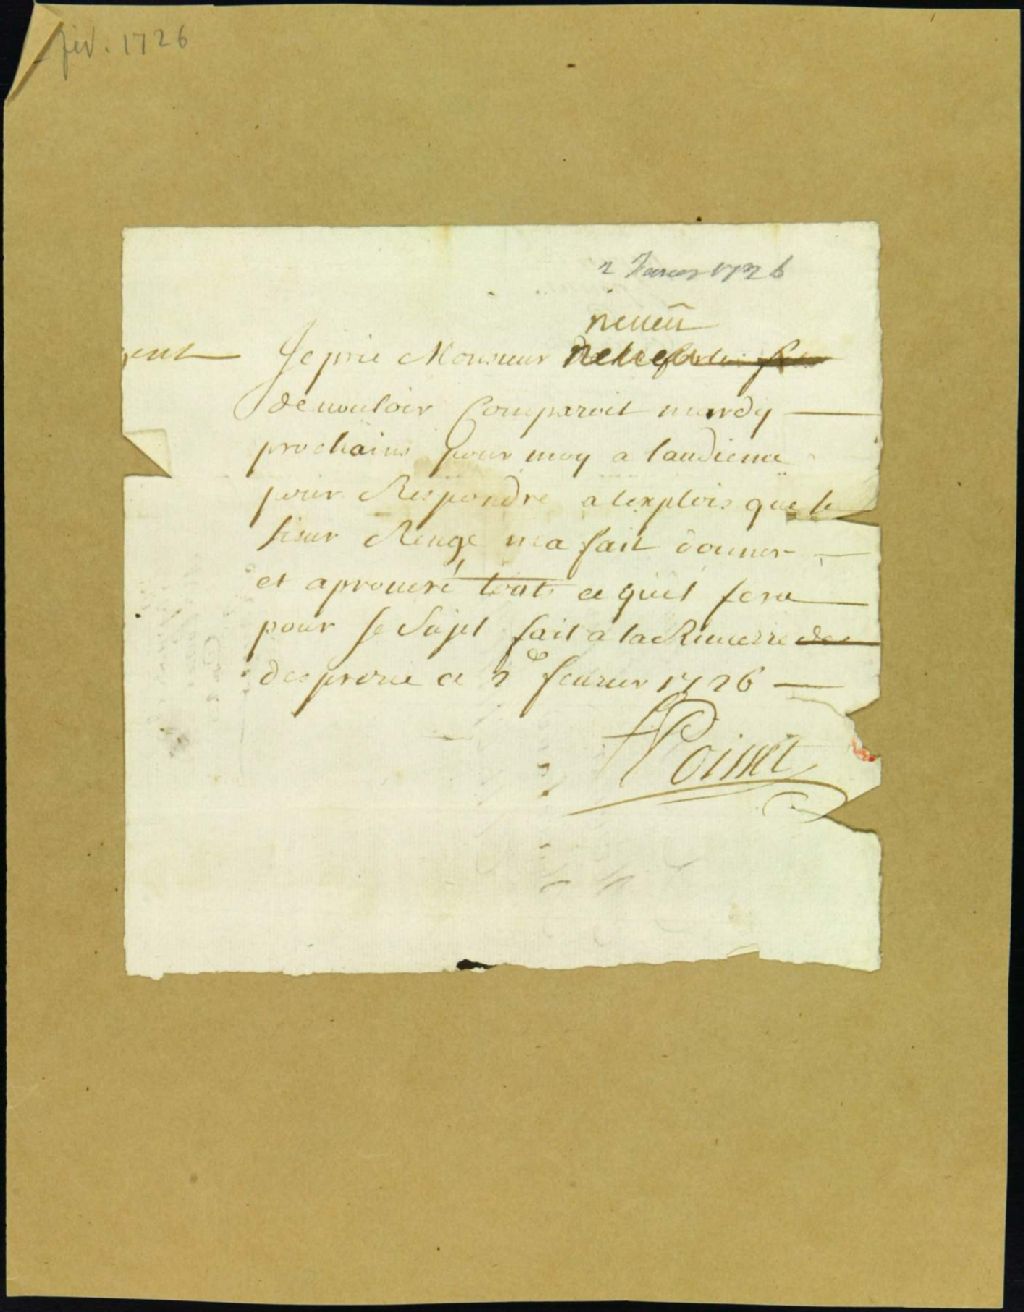 fév. 1726
2 1726
neueu
Je prie Monsieur
de uouloir Comparoit mardy
prochains pour moy a laudience
pour Respondre a lexplois que le
sieur ma fait donner
et aprouuere touts ce quil fera
pour le Sujet fait a la Riuierre de
desprerie ce 2d feurier 1726